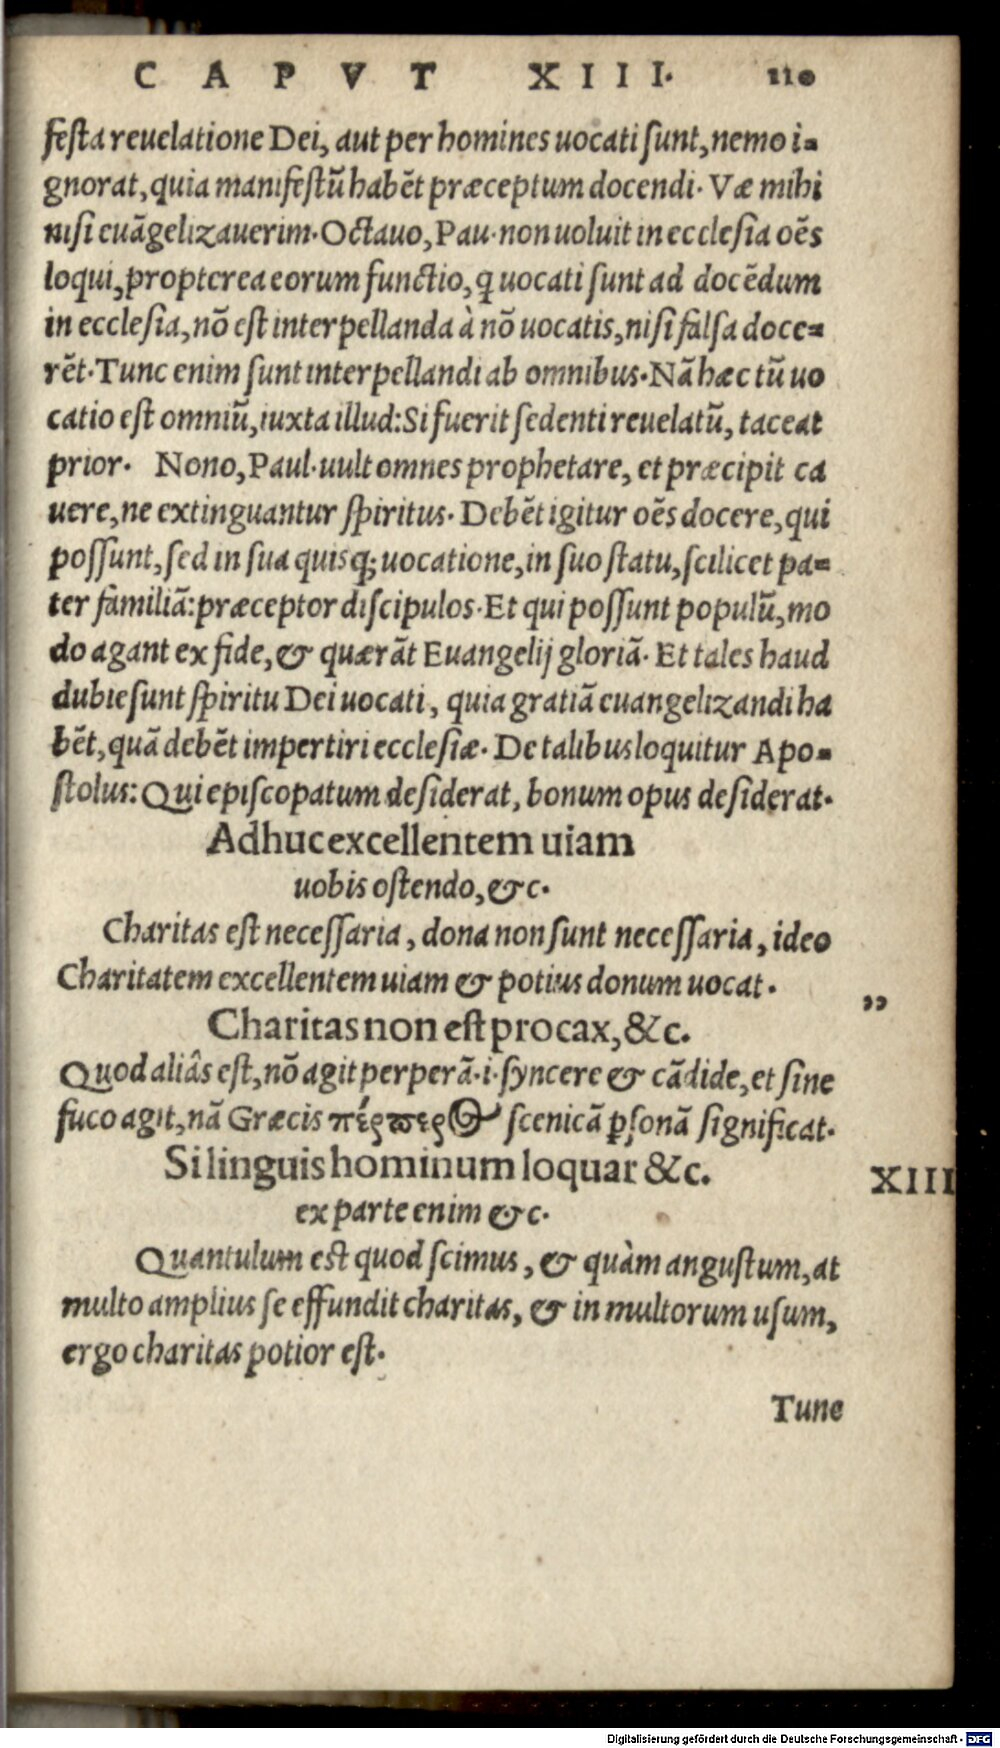 CAPVT XIII. 110
festa reuelatione Dei, aut per homines uocati sunt, nemo i-
gnorat, quia manifestũ habẽt præceptum docendi. Væ mihi
nisi euãgelizauerim. Octauo, Pau. non uoluit in ecclesia oẽs
loqui, propterea eorum functio, ꝗ uocati sunt ad docẽdum
in ecclesia, nõ est interpellanda à nõ uocatis, nisi falsa doce-
rẽt. Tunc enim sunt interpellandi ab omnibus. Nã hæc tũ uo
catio est omniũ, iuxta illud: Si fuerit sedenti reuelatũ, taceat
prior. Nono, Paul. uult omnes prophetare, et præcipit ca
uere, ne extinguantur spiritus. Debẽt igitur oẽs docere, qui
possunt, sed in sua quisq; uocatione, in suo statu, scilicet pa-
ter familiã: præceptor discipulos. Et qui possunt populũ, mo
do agant ex fide, & quærãt Euangelij gloriã. Et tales haud
dubie sunt spiritu Dei uocati, quia gratiã euangelizandi ha
bẽt, quã debẽt impertiri ecclesiæ. De talibus loquitur Apo-
stolus: Qui episcopatum desiderat, bonum opus desiderat.
Adhuc excellentem uiam
uobis ostendo, &c.
Charitas est necessaria, dona non sunt necessaria, ideo
Charitatem excellentem uiam & potius donum uocat.
„
Charitas non est procax, &c.
Quod aliâs est, nõ agit perperã. i. syncere & cãdide, et sine
fuco agit, nã Græcis scenicã ꝑsonã significat.
Si linguis hominum loquar &c. XIII
ex parte enim &c.
Quantulum est quod scimus, & quàm angustum, at
multo amplius se effundit charitas, & in multorum usum,
ergo charitas potior est.
Tunc
Digitalisierung gefördert durch die Deutsche Forschungsgemeinschaft - DFG